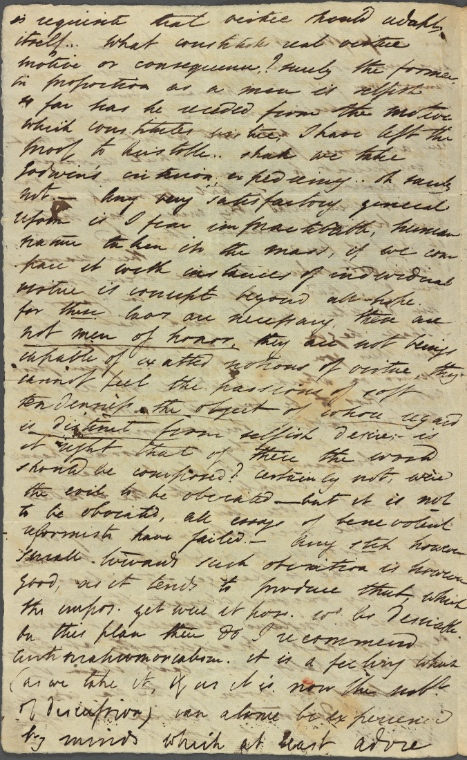 is requisite that virtue should adapt
itself.. What constitutes real virtue
motive or consequence? surely the former
in proportion as a man is selfish
so far has he receded from the motive
which constitutes virtue, I have left the
proof to Aristotle.. shall we take
Godwins criterion, expediency.. oh surely
not — Any very satisfactory general
reform is I fear impracticable, human
nature taken in the mass, if we com
pare it with instances of individual
virtue is corrupt beyond all hope
for these laws are necessary these are
not men of honor, they are not beings
capable of exalted notions of virtue they
cannot feel the passions of soft
tenderness the object of whose regard
is distinct from selfish desire. is
it right that of these the world
should be composed? certainly not, were
the evil to be obviated — but it is not
to be obviated, all essays of benevolent
reformists have failed. — Any step however
small towards such obviation is however
good, as it tends to produce that which
tho impos. yet were it pos. wd. be desirable
on this plan then do I recommend
Antimatrimonialism. it is a feeling which
(as we take it, if as it is now the subt.
of discussion) can alone be experienced
by minds which at least